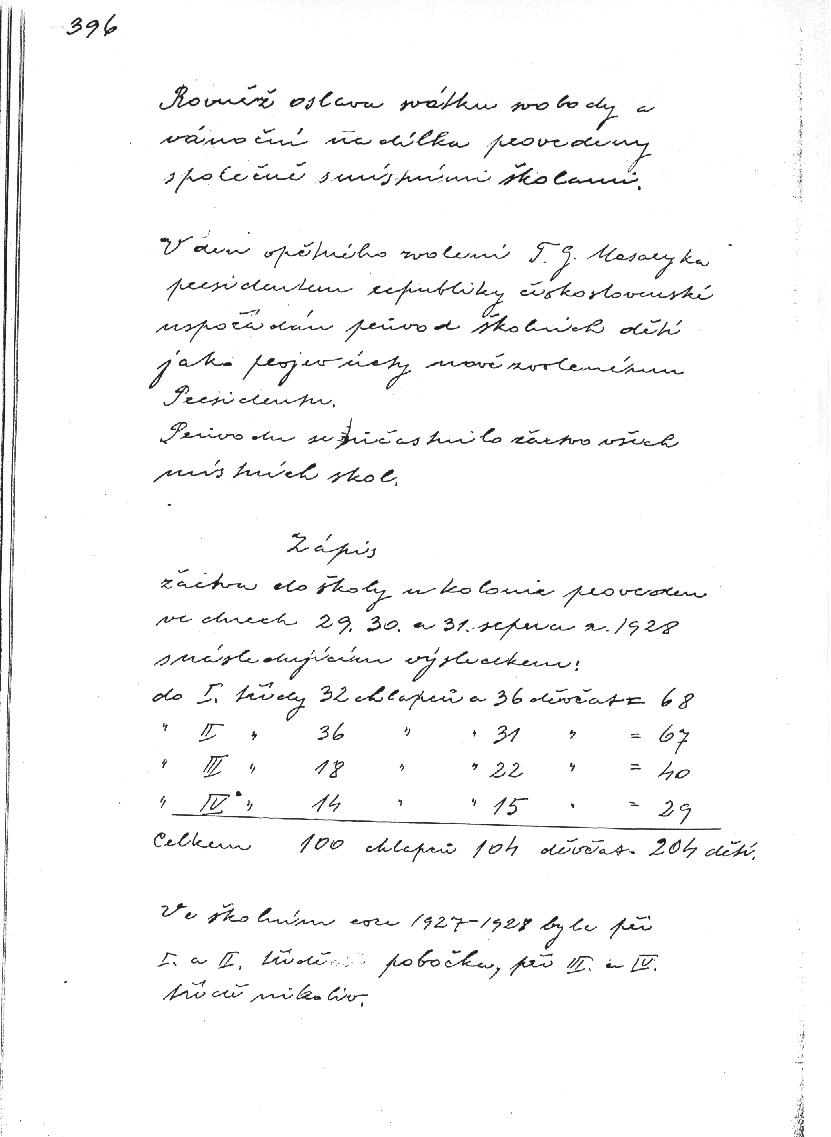 396
Rovněž oslava svátku svobody a
vánoční nadílka provedeny
společně s místními školami.
V den opětného zvolení T. G. Masaryka
presidentem republiky československé
uspořádán průvod školních dětí
jako projev úcty nově zvolenému
Presidentu.
Průvodu se súčastnilo žactvo všech
místních škol.
Zápis
žactva do školy u kolonie proveden
ve dnech 29. 30. a 31. srpna r. 1928
s následujícím výsledkem:
do I. třídy 32 chlapců a 36 děvčat = 68
" II " 36 " " 31 " = 67
" III " 18 " " 22 " = 40
" IV " 14 " " 15 " = 29
Celkem 100 chlapců 104 děvčat = 204 dětí.
Ve školním roce 1927-1928 byla při
I. a II. třídě pobočka, při III. a IV.
třídě nikoliv.